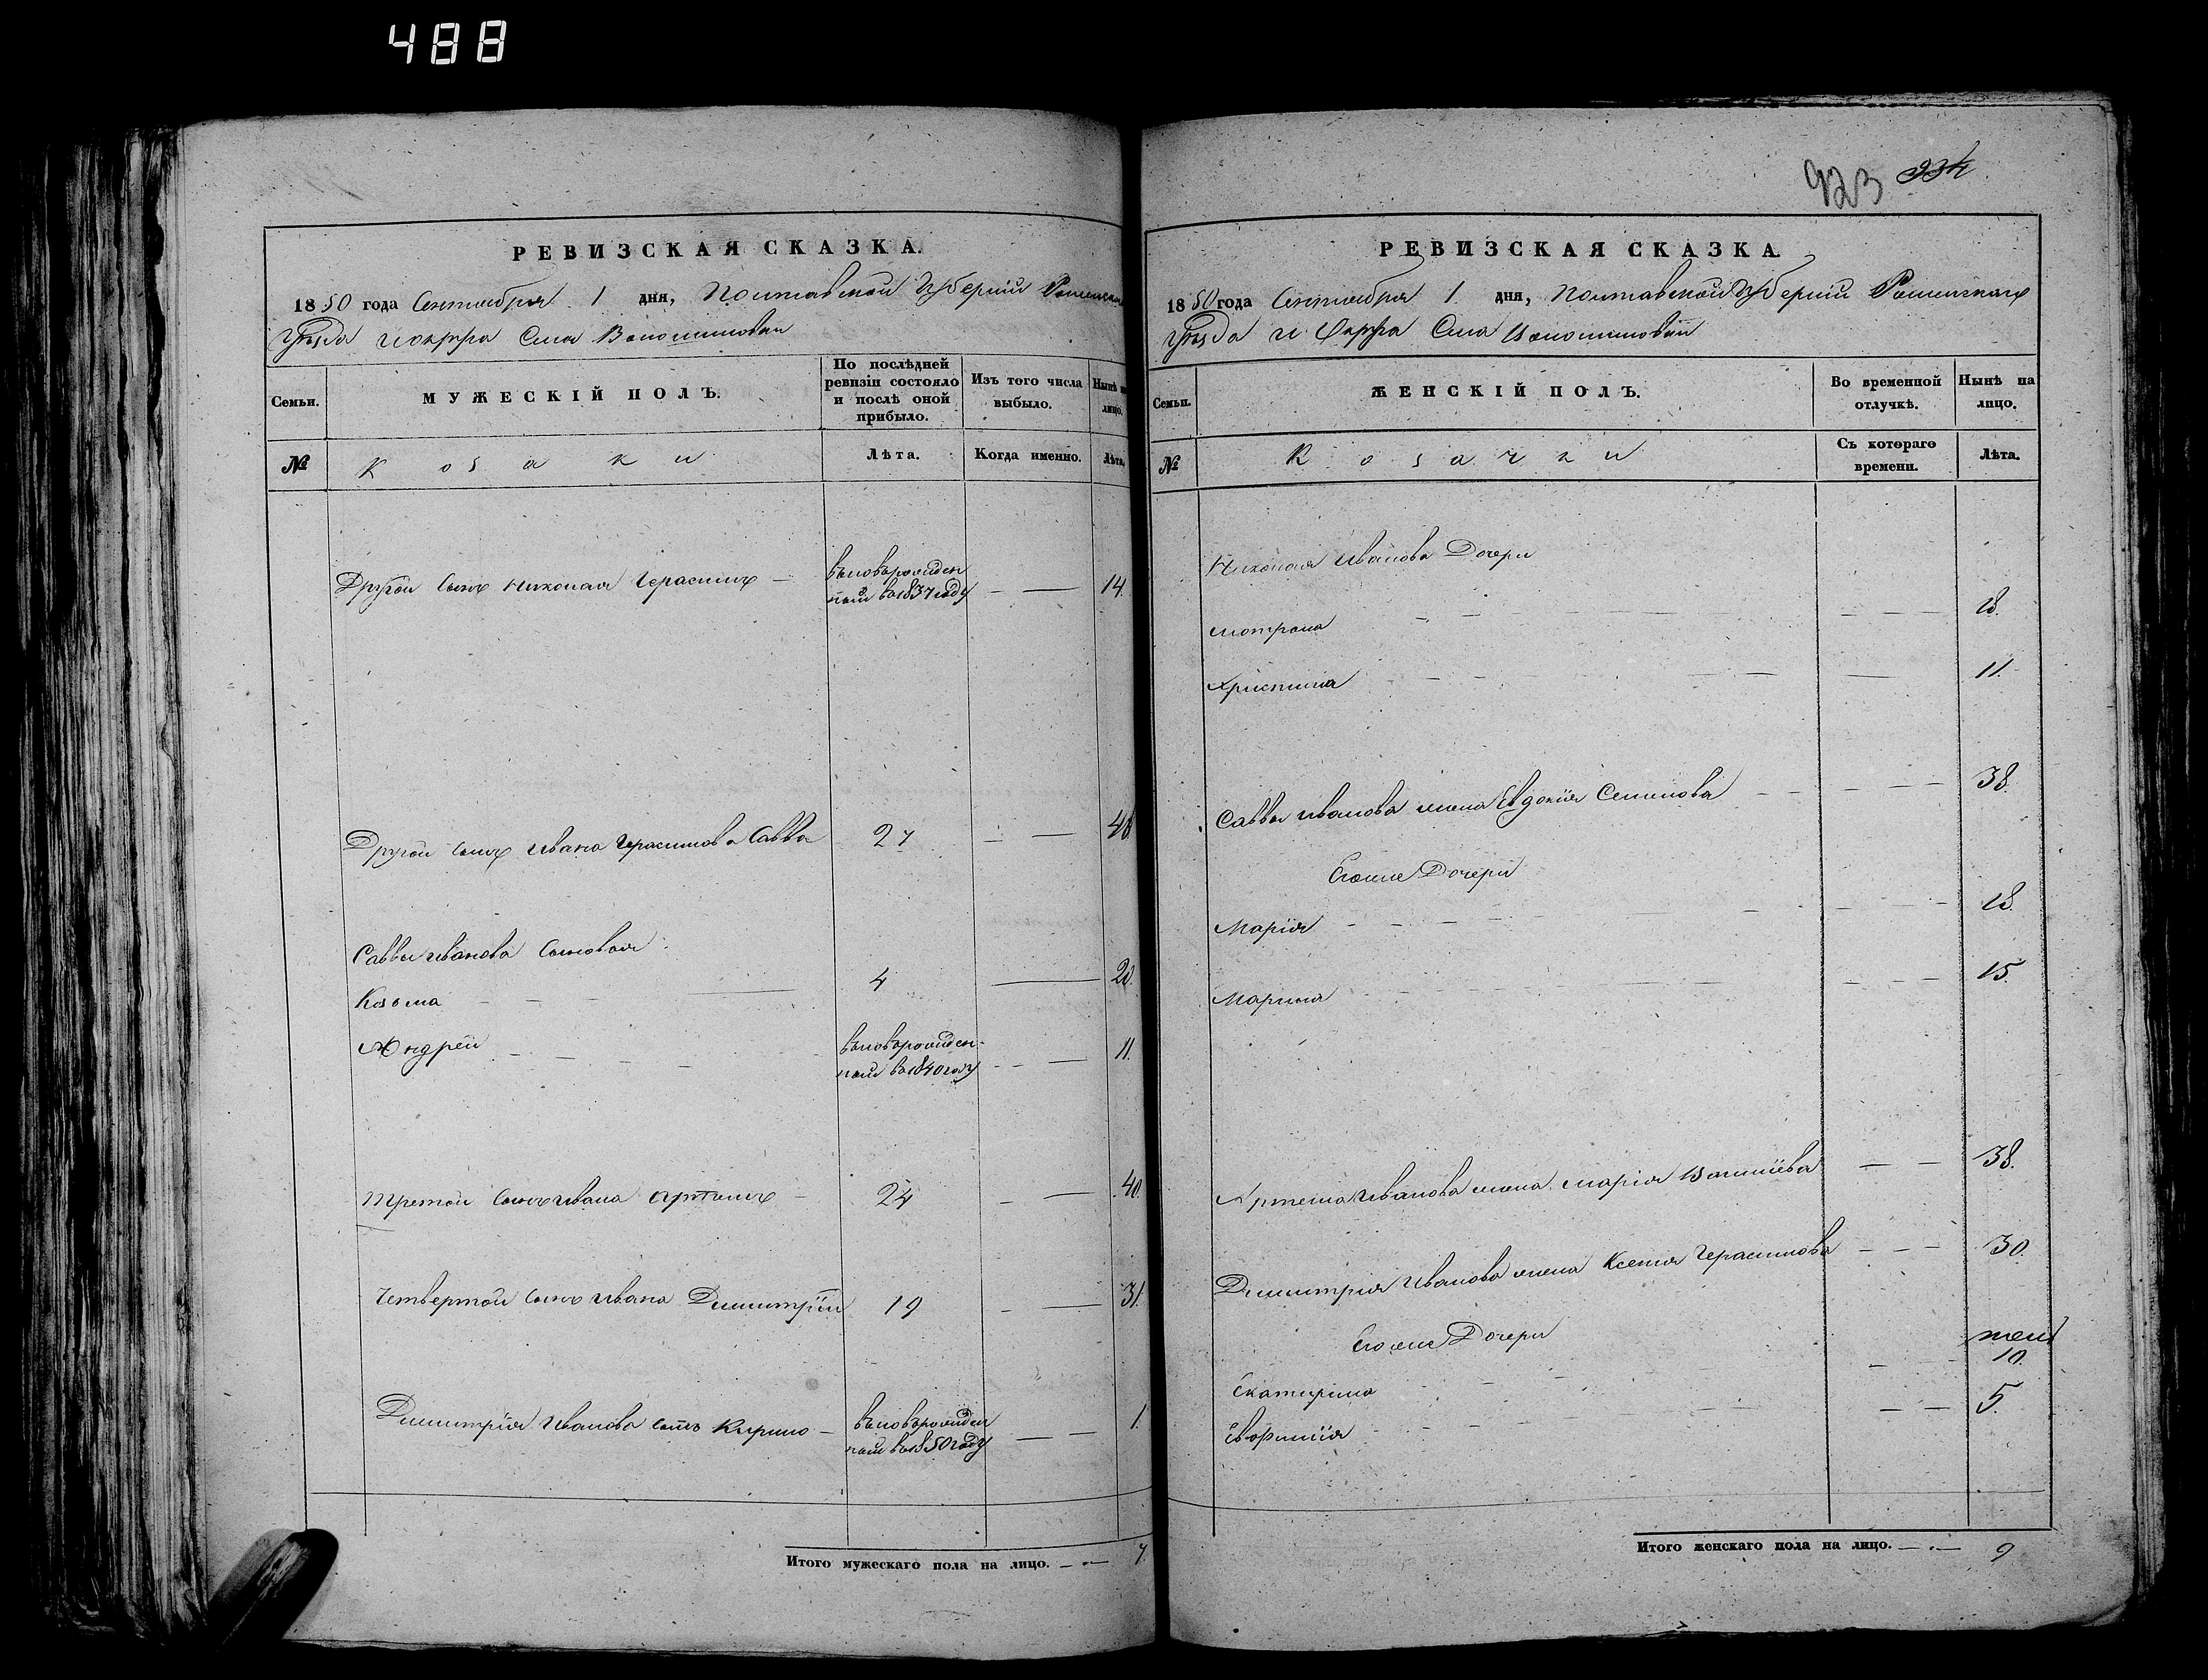 488
923 934
РЕВИЗСКАЯ СКАЗКА.
1850 года Сентября 1 дня, Полтавской Губернiи Роменскаго
Уѣзда и округа Села Волошиновки
Семьи.
МУЖЕСКIЙ ПОЛЪ.
По послѣдней ревизiи состояло и послѣ оной прибыло.
Изъ того числа выбыло.
Нынѣ на лицо.
№
Козаки
Лѣта.
Когда именно.
Лѣта.
Другой сынъ Николая Герасимъ — вновьрожден
ный в 1837 году — — 14.
Другой сынъ Ивана Герасимова Савва 27 — — 48
Саввы Иванова сыновья
Козьма — — — 4 — 20.
Андрей — — — вновьрожден-
ный в 1840 году — — 11.
Третой сынъ Ивана Артемъ — 24 — — 40.
Четвертой сынъ Ивана Димитрiй 19 — — 31.
Димитрiя Иванова сынъ Кирило — вновьрожден
ный в 1850 году — — 1.
Итого мужескаго пола на лицо. — — 7.
РЕВИЗСКАЯ СКАЗКА.
1850 года Сентября 1 дня, Полтавской Губернiи Роменскаго
Уѣзда и Округа Села Волошиновки
Семьи.
ЖЕНСКIЙ ПОЛЪ.
Во временной отлучкѣ.
Нынѣ на лицо.
№
Козачки
Съ котораго времени.
Лѣта.
Николая Иванова Дочери
Мотрона — — — — 18.
Христина — — — — 11.
Саввы Иванова жена Евдокiя Семенова — — — 38.
Егоже Дочери
Марiя — — — — 18.
Марина — — — — 15.
Артема Иванова жена Марiя — — 38.
Димитрия Иванова жена Ксения Герасимова — — — 30.
Егоже Дочери
Екатирина — — — — 10.
Евфимiя — — — — 5.
Итого женскаго пола на лицо. — — 9